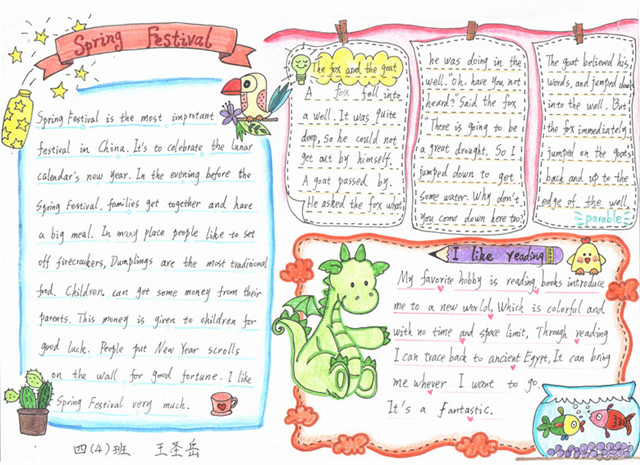 Spring Festival
Spring Festival is the most improtant
festival in China. It's to celebrate the lunar
calendar's new year. In the evening before the
Spring Festival, families get together and have
a big meal. In many place people like to set
off firecrackers, Dumplings are the most traditional
food. Children can get some money from their
parents. This money is given to children for
good luck. People put New Year scrolls
on the wall for good fortune. I like
Spring Festival very much.
四(4)班 王圣岳
The fox and the goat
A fox fell into
a well. It was quite
deep, so he could not
get out by himself.
A goat passed by.
He asked the fox what
he was doing in the
well. Oh, have you not
heard? Said the fox
There is going to be
a great drought, So I
jumped down to get
some water. Why don't
you come down here too?
The goat believed his
words, and jumped down
into the well. But,
the fox immediately
jumped on the goat's
back and up to the
edge of the well.
parable
I like reading
My favorite hobby is reading, books introduce
me to a new world, Which is colorful and
with no time and space limit, Through reading
I can trace back to ancient Egypt, It can bring
me whever I want to go.
It's a fantastic.